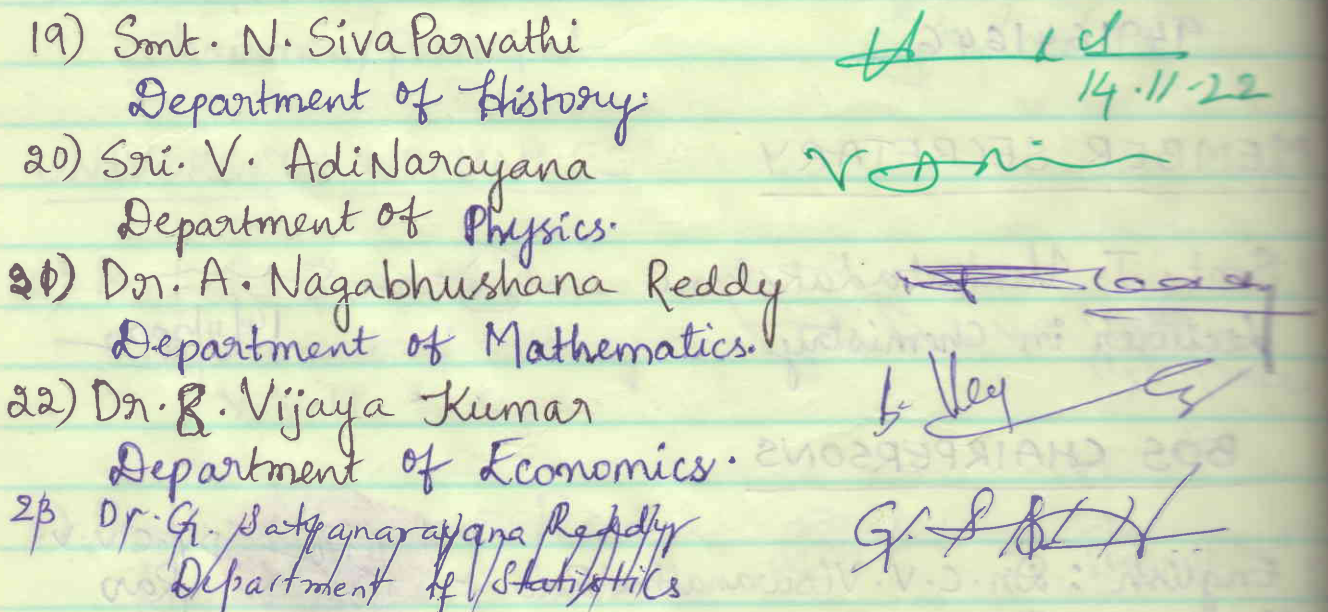 19) Smt. N. Siva Parvathi
Department of History.
14.11.22
20) Sri. V. AdiNarayana
Department of Physics.
21) Dr. A. Nagabhushana Reddy
Department of Mathematics.
22) Dr. B. Vijaya Kumar
Department of Economics.
23 Dr. G. Satyanarayana Reddy
Department of Statistics